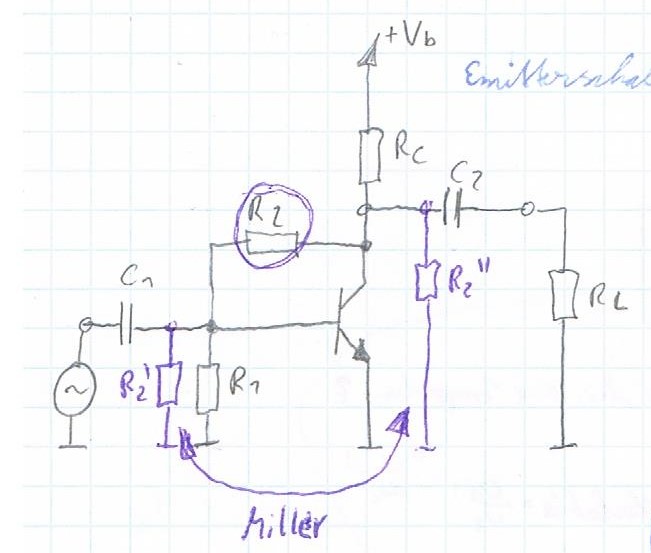 +Vb
Emitterscha
RC
R2
C2
C1
R2''
RL
R2'
R1
~
Miller